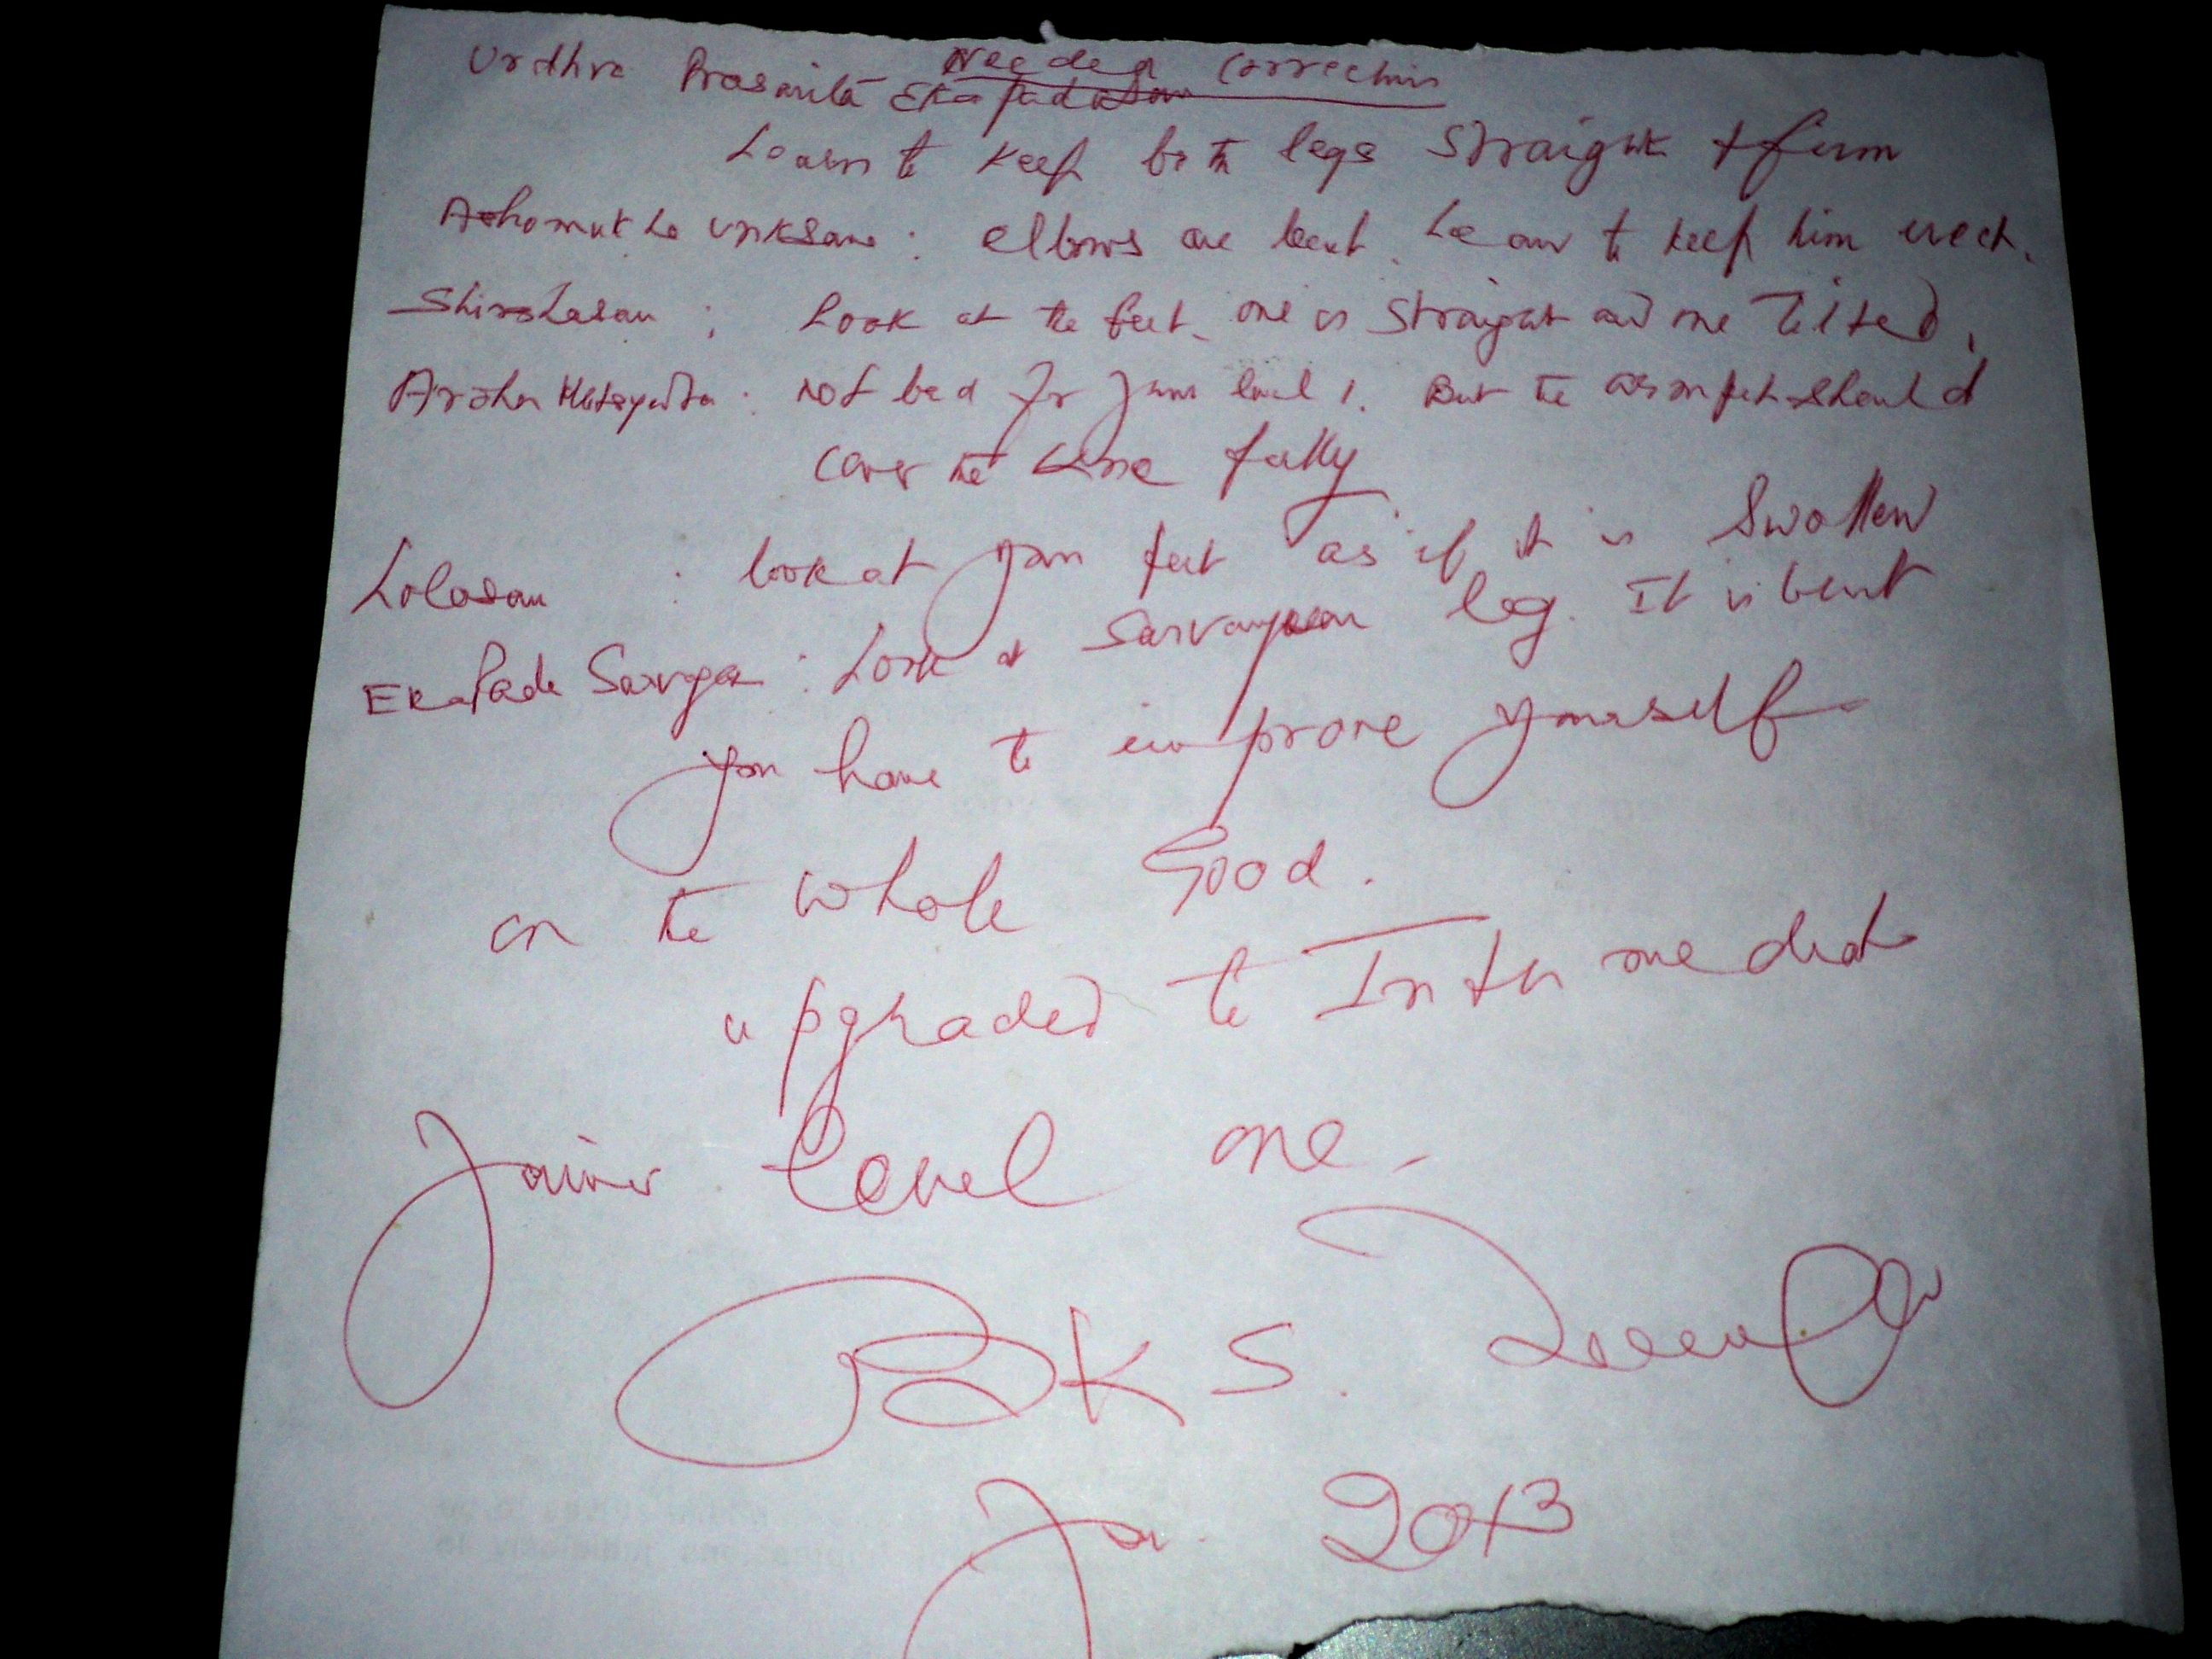 Needed Correction
Urdhva Prasarita Ekapadasan
Learn to keep both legs straight & firm
Adhomukha vriksana : elbows are bent. Learn to keep him erect.
Shirshasan : Look at the feet. one is straight and one Tilted.
Ardha Matsyendra : not bad for level 1. But the armpit should
cover the knee fully
Lolasan : look at your feet as if it is Swollen
Eka Pada Sarvga : Look at Sarvangasan leg. It is bent
you have to improve yourself
on the whole Good.
upgraded to Intermediate
Junior level one.
BKS. Iyengar
Jan. 2013